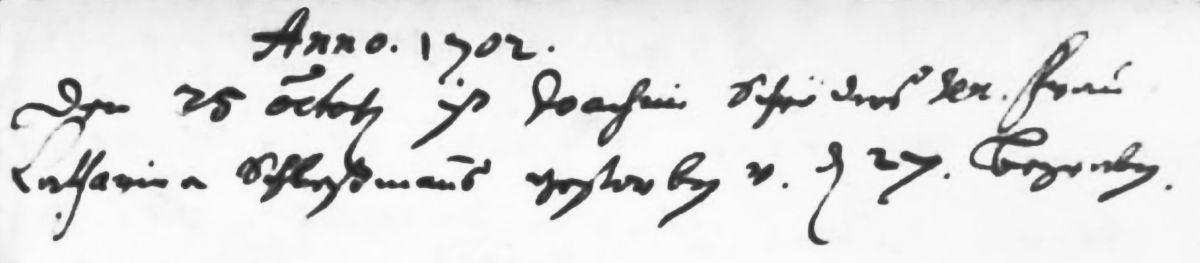 Anno. 1702.
Den 25 Octob ist Joachim Schröders Frau
Catharina gestorben v. d 27. begraben.